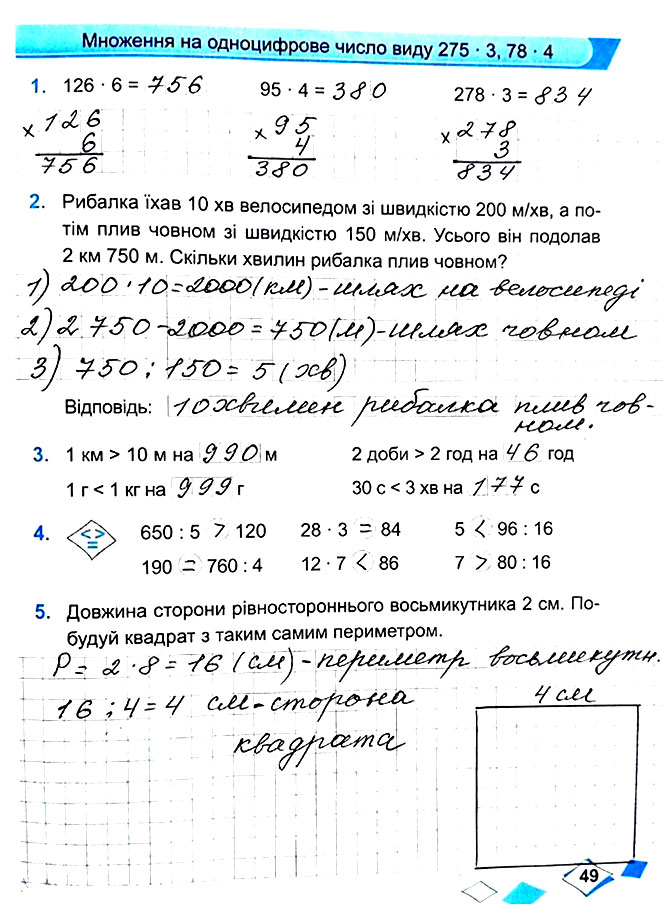 Множення на одноцифрове число виду 275 · 3, 78 · 4
1. 126 · 6 = 756 95 · 4 = 380 278 · 3 = 834
x 126 x 95 x 278
6 4 3
756 380 834
2. Рибалка їхав 10 хв велосипедом зі швидкістю 200 м/хв, а по-
тім плив човном зі швидкістю 150 м/хв. Усього він подолав
2 км 750 м. Скільки хвилин рибалка плив човном?
1) 200 · 10 = 2000 (км) - шлях на велосипеді
2) 2 750 - 2000 = 750 (м) - шлях човном
3) 750 : 150 = 5 (хв)
Відповідь: 10 хвилин рибалка плив чов-
ном.
3. 1 км > 10 м на 990 м 2 доби > 2 год на 46 год
1 г < 1 кг на 999 г 30 с < 3 хв на 177 с
4. < > = 650 : 5 > 120 28 · 3 = 84 5 < 96 : 16
190 = 760 : 4 12 · 7 < 86 7 > 80 : 16
5. Довжина сторони рівностороннього восьмикутника 2 см. По-
будуй квадрат з таким самим периметром.
P = 2 · 8 = 16 (см) - периметр восьмикутн.
16 : 4 = 4 см - сторона
квадрата
4 см
49